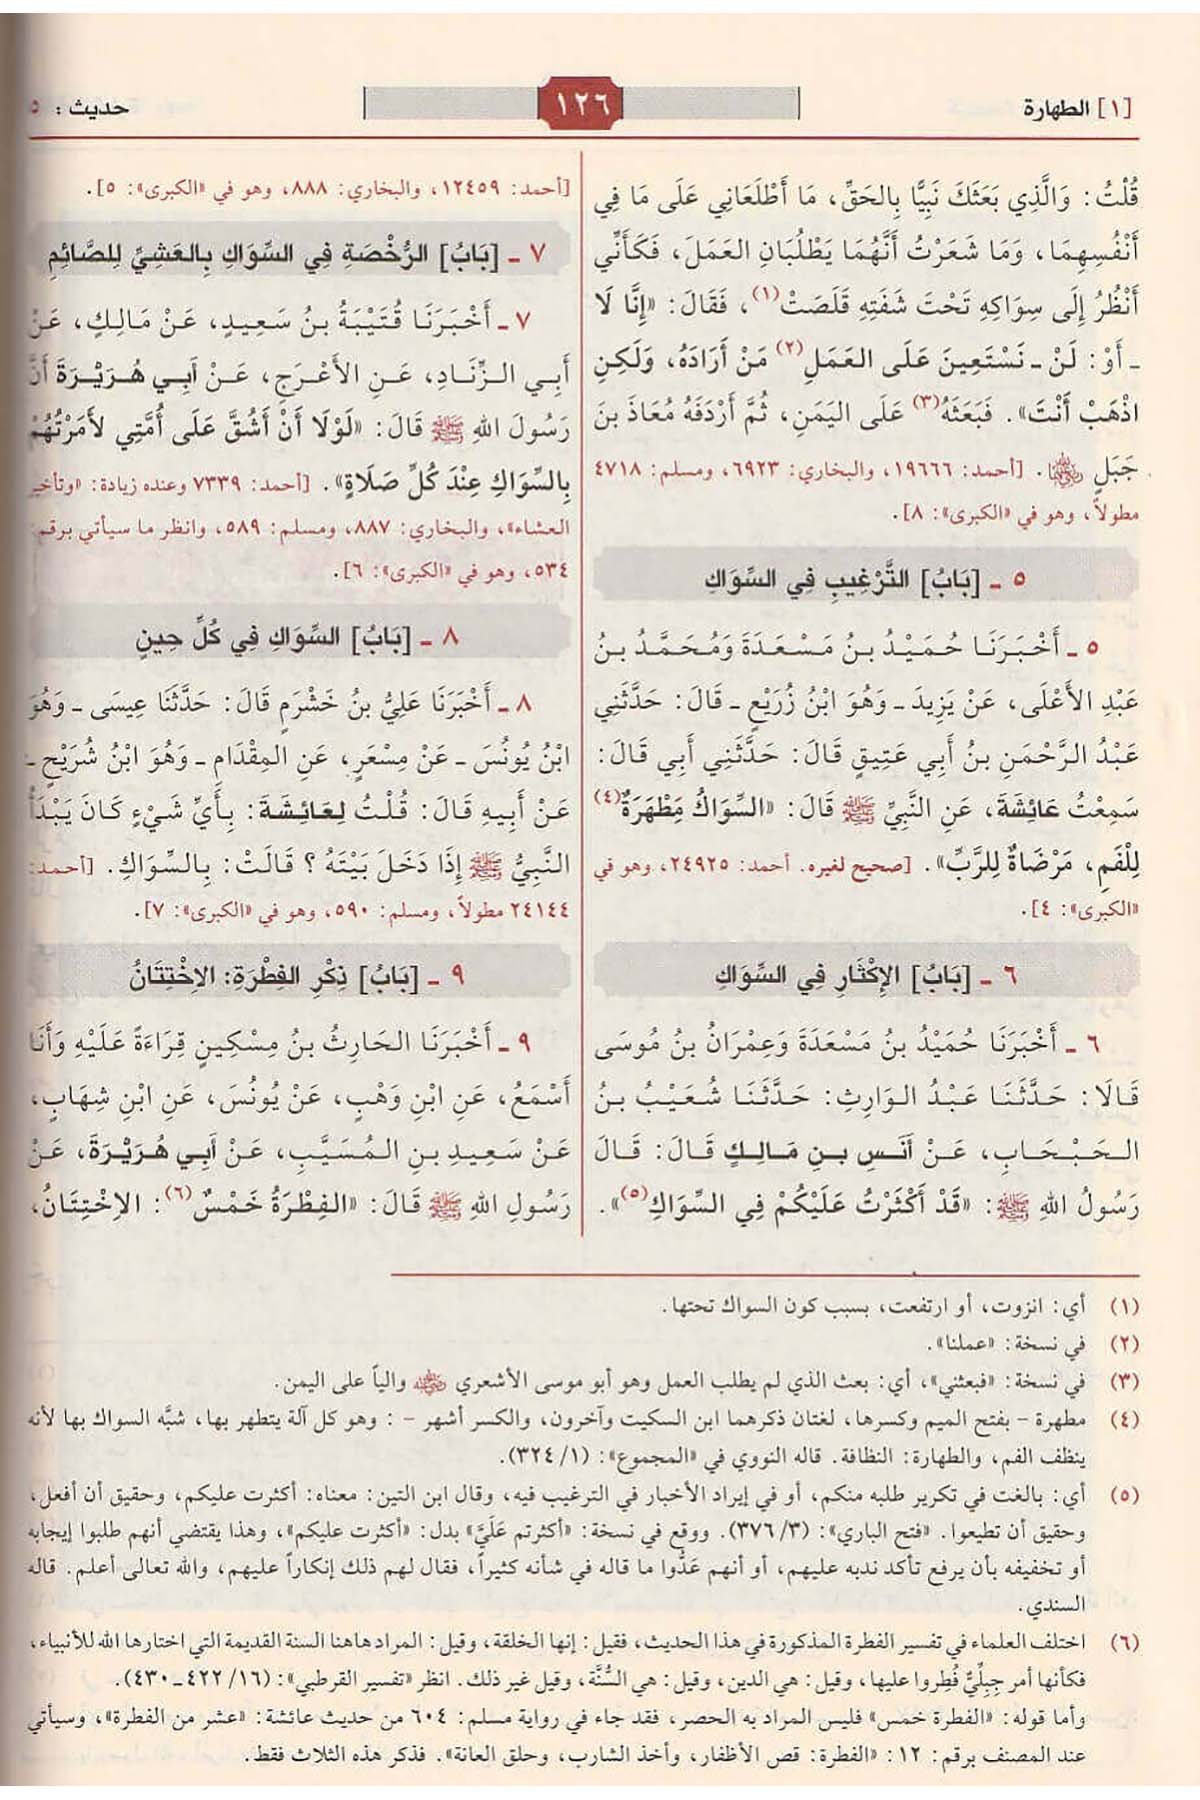 [١] الطهارة
١٢٦
حديث : ٥
قُلْتُ: وَالَّذِي بَعَثَكَ نَبِيًّا بِالحَقِّ، مَا أَطْلَعَانِي عَلَى مَا فِي
أَنْفُسِهِمَا، وَمَا شَعَرْتُ أَنَّهُمَا يَطْلُبَانِ العَمَلَ، فَكَأَنِّي
أَنْظُرُ إِلَى سِوَاكِهِ تَحْتَ شَفَتِهِ قَلَصَتْ(١)، فَقَالَ: «إِنَّا لَا
ـ أَوْ: لَنْ ـ نَسْتَعِينَ عَلَى العَمَلِ(٢) مَنْ أَرَادَهُ، وَلَكِنِ
اذْهَبْ أَنْتَ». فَبَعَثَهُ(٣) عَلَى اليَمَنِ، ثُمَّ أَرْدَفَهُ مُعَاذَ بنَ
جَبَلٍ ﵁. [أحمد: ١٩٦٦٦، والبخاري: ٦٩٢٣، ومسلم: ٤٧١٨
مطولاً، وهو في «الكبرى»: ٨].
٥ ـ [بَابُ] التَّرْغِيبِ فِي السِّوَاكِ
٥ ـ أَخْبَرَنَا حُمَيْدُ بنُ مَسْعَدَةَ وَمُحَمَّدُ بنُ
عَبْدِ الأَعْلَى، عَنْ يَزِيدَ ـ وَهُوَ ابْنُ زُرَيْعٍ ـ قَالَ: حَدَّثَنِي
عَبْدُ الرَّحْمَنِ بنُ أَبِي عَتِيقٍ قَالَ: حَدَّثَنِي أَبِي قَالَ:
سَمِعْتُ عَائِشَةَ، عَنِ النَّبِيِّ ﷺ قَالَ: «السِّوَاكُ مِطْهَرَةٌ(٤)
لِلْفَمِ، مَرْضَاةٌ لِلرَّبِّ». [صحيح لغيره. أحمد: ٢٤٩٢٥، وهو في
«الكبرى»: ٤].
٦ ـ [بَابُ] الإِكْثَارِ فِي السِّوَاكِ
٦ ـ أَخْبَرَنَا حُمَيْدُ بنُ مَسْعَدَةَ وَعِمْرَانُ بنُ مُوسَى
قَالَا: حَدَّثَنَا عَبْدُ الوَارِثِ: حَدَّثَنَا شُعَيْبُ بنُ
الحَبْحَابِ، عَنْ أَنَسِ بنِ مَالِكٍ قَالَ: قَالَ
رَسُولُ اللهِ ﷺ: «قَدْ أَكْثَرْتُ عَلَيْكُمْ فِي السِّوَاكِ(٥)».
[أحمد: ١٢٤٥٩، والبخاري: ٨٨٨، وهو في «الكبرى»: ٥].
٧ ـ [بَابُ] الرُّخْصَةِ فِي السِّوَاكِ بِالعَشِيِّ لِلصَّائِمِ
٧ ـ أَخْبَرَنَا قُتَيْبَةُ بنُ سَعِيدٍ، عَنْ مَالِكٍ، عَنْ
أَبِي الزِّنَادِ، عَنِ الأَعْرَجِ، عَنْ أَبِي هُرَيْرَةَ أَنَّ
رَسُولَ اللهِ ﷺ قَالَ: «لَوْلَا أَنْ أَشُقَّ عَلَى أُمَّتِي لأَمَرْتُهُمْ
بِالسِّوَاكِ عِنْدَ كُلِّ صَلَاةٍ». [أحمد: ٧٣٣٩ وعنده زيادة: «وتأخير
العشاء»، والبخاري: ٨٨٧، ومسلم: ٥٨٩، وانظر ما سيأتي برقم:
٥٣٤، وهو في «الكبرى»: ٦].
٨ ـ [بَابُ] السِّوَاكِ فِي كُلِّ حِينٍ
٨ ـ أَخْبَرَنَا عَلِيُّ بنُ خَشْرَمٍ قَالَ: حَدَّثَنَا عِيسَى ـ وَهُوَ
ابْنُ يُونُسَ ـ عَنْ مِسْعَرٍ، عَنِ المِقْدَامِ ـ وَهُوَ ابْنُ شُرَيْحٍ ـ
عَنْ أَبِيهِ قَالَ: قُلْتُ لِعَائِشَةَ: بِأَيِّ شَيْءٍ كَانَ يَبْدَأُ
النَّبِيُّ ﷺ إِذَا دَخَلَ بَيْتَهُ؟ قَالَتْ: بِالسِّوَاكِ. [أحمد:
٢٤١٤٤ مطولاً، ومسلم: ٥٩٠، وهو في «الكبرى»: ٧].
٩ ـ [بَابُ] ذِكْرِ الفِطْرَةِ: الاِخْتِتَانُ
٩ ـ أَخْبَرَنَا الحَارِثُ بنُ مِسْكِينٍ قِرَاءَةً عَلَيْهِ وَأَنَا
أَسْمَعُ، عَنِ ابْنِ وَهْبٍ، عَنْ يُونُسَ، عَنِ ابْنِ شِهَابٍ،
عَنْ سَعِيدِ بنِ المُسَيَّبِ، عَنْ أَبِي هُرَيْرَةَ، عَنْ
رَسُولِ اللهِ ﷺ قَالَ: «الفِطْرَةُ خَمْسٌ(٦): الاِخْتِتَانُ،
(١) أي: انزوت، أو ارتفعت، بسبب كون السواك تحتها.
(٢) في نسخة: «عملنا».
(٣) في نسخة: «فبعثني»، أي: بعث الذي لم يطلب العمل وهو أبو موسى الأشعري ﵁ والياً على اليمن.
(٤) مطهرة – بفتح الميم وكسرها، لغتان ذكرهما ابن السكيت وآخرون، والكسر أشهر – : وهو كل آلة يتطهر بها، شبَّه السواك بها لأنه
ينظف الفم، والطهارة: النظافة. قاله النووي في «المجموع»: (١/ ٣٢٤).
(٥) أي: بالغت في تكرير طلبه منكم، أو في إيراد الأخبار في الترغيب فيه، وقال ابن التين: معناه: أكثرت عليكم، وحقيق أن أفعل،
وحقيق أن تطيعوا. «فتح الباري»: (٣/ ٣٧٦). ووقع في نسخة: «أكثرتم عَلَيَّ» بدل: «أكثرت عليكم»، وهذا يقتضي أنهم طلبوا إيجابه
أو تخفيفه بأن يرفع تأكد ندبه عليهم، أو أنهم عَدُّوا ما قاله في شأنه كثيراً، فقال لهم ذلك إنكاراً عليهم، والله تعالى أعلم. قاله
السندي.
(٦) اختلف العلماء في تفسير الفطرة المذكورة في هذا الحديث، فقيل: إنها الخلقة، وقيل: المراد هاهنا السنة القديمة التي اختارها الله للأنبياء،
فكأنها أمر جِبِلِّيٌّ فُطِروا عليها، وقيل: هي الدين، وقيل: هي السُّنَّة، وقيل غير ذلك. انظر «تفسير القرطبي»: (١٦/ ٤٢٢ـ٤٣٠).
وأما قوله: «الفطرة خمس» فليس المراد به الحصر، فقد جاء في رواية مسلم: ٦٠٤ من حديث عائشة: «عشر من الفطرة»، وسيأتي
عند المصنف برقم: ١٢: «الفطرة: قص الأظفار، وأخذ الشارب، وحلق العانة». فذكر هذه الثلاث فقط.